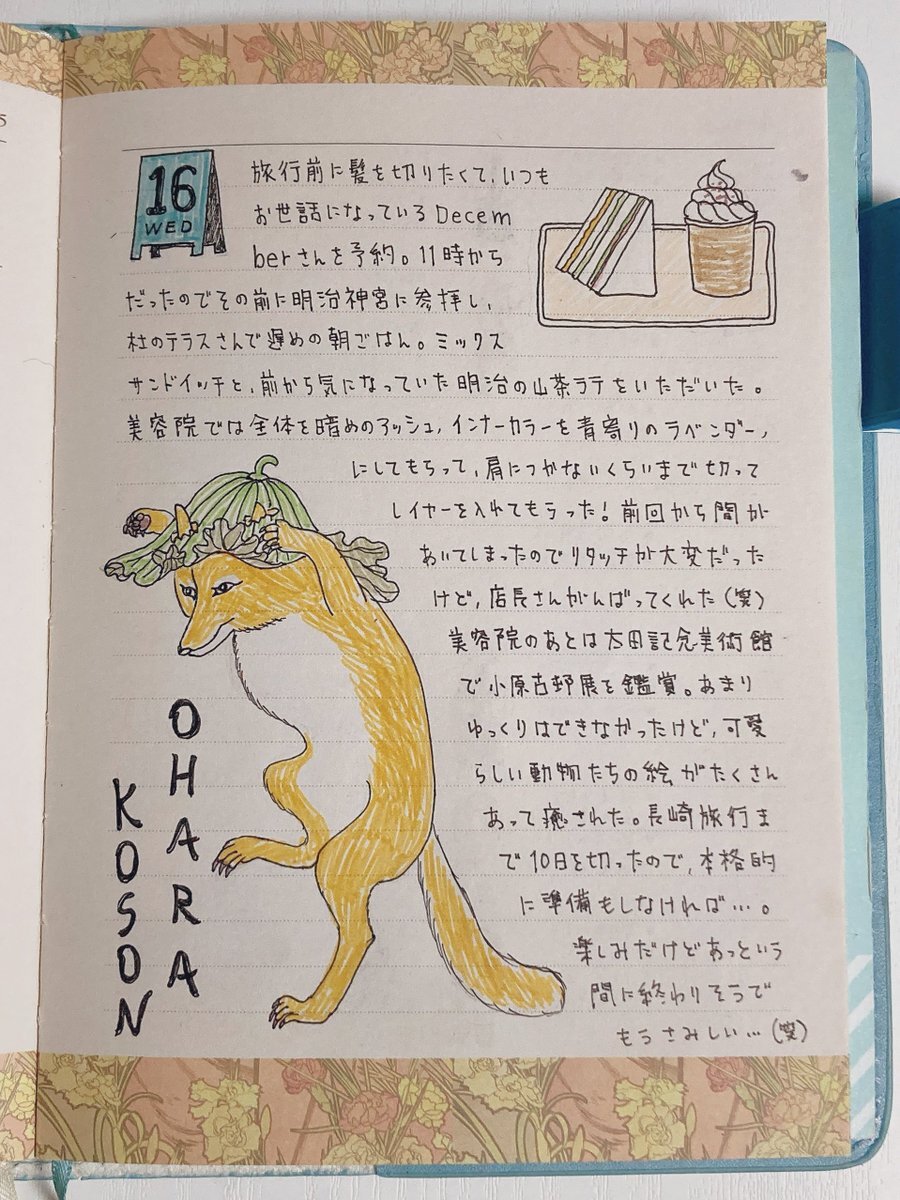 16
WED
旅行前に髪を切りたくて、いつも
お世話になっているDecem
berさんを予約。11時から
だったのでその前に明治神宮に参拝し、
杜のテラスさんで遅めの朝ごはん。ミックス
サンドイッチと、前から気になっていた明治の山茶ラテをいただいた。
美容院では全体を暗めのアッシュ、インナーカラーを青寄りのラベンダー、
にしてもらって、肩につかないくらいまで切って
レイヤーを入れてもらった！前回から間が
あいてしまったのでリタッチが大変だった
けど、店長さんがんばってくれた（笑）
美容院のあとは太田記念美術館
で小原古邨展を鑑賞。あまり
ゆっくりはできなかったけど、可愛
らしい動物たちの絵がたくさん
あって癒された。長崎旅行ま
で10日を切ったので、本格的
に準備もしなければ…。
楽しみだけどあっという
間に終わりそうで
もうさみしい…（笑）
OHARA
KOSON